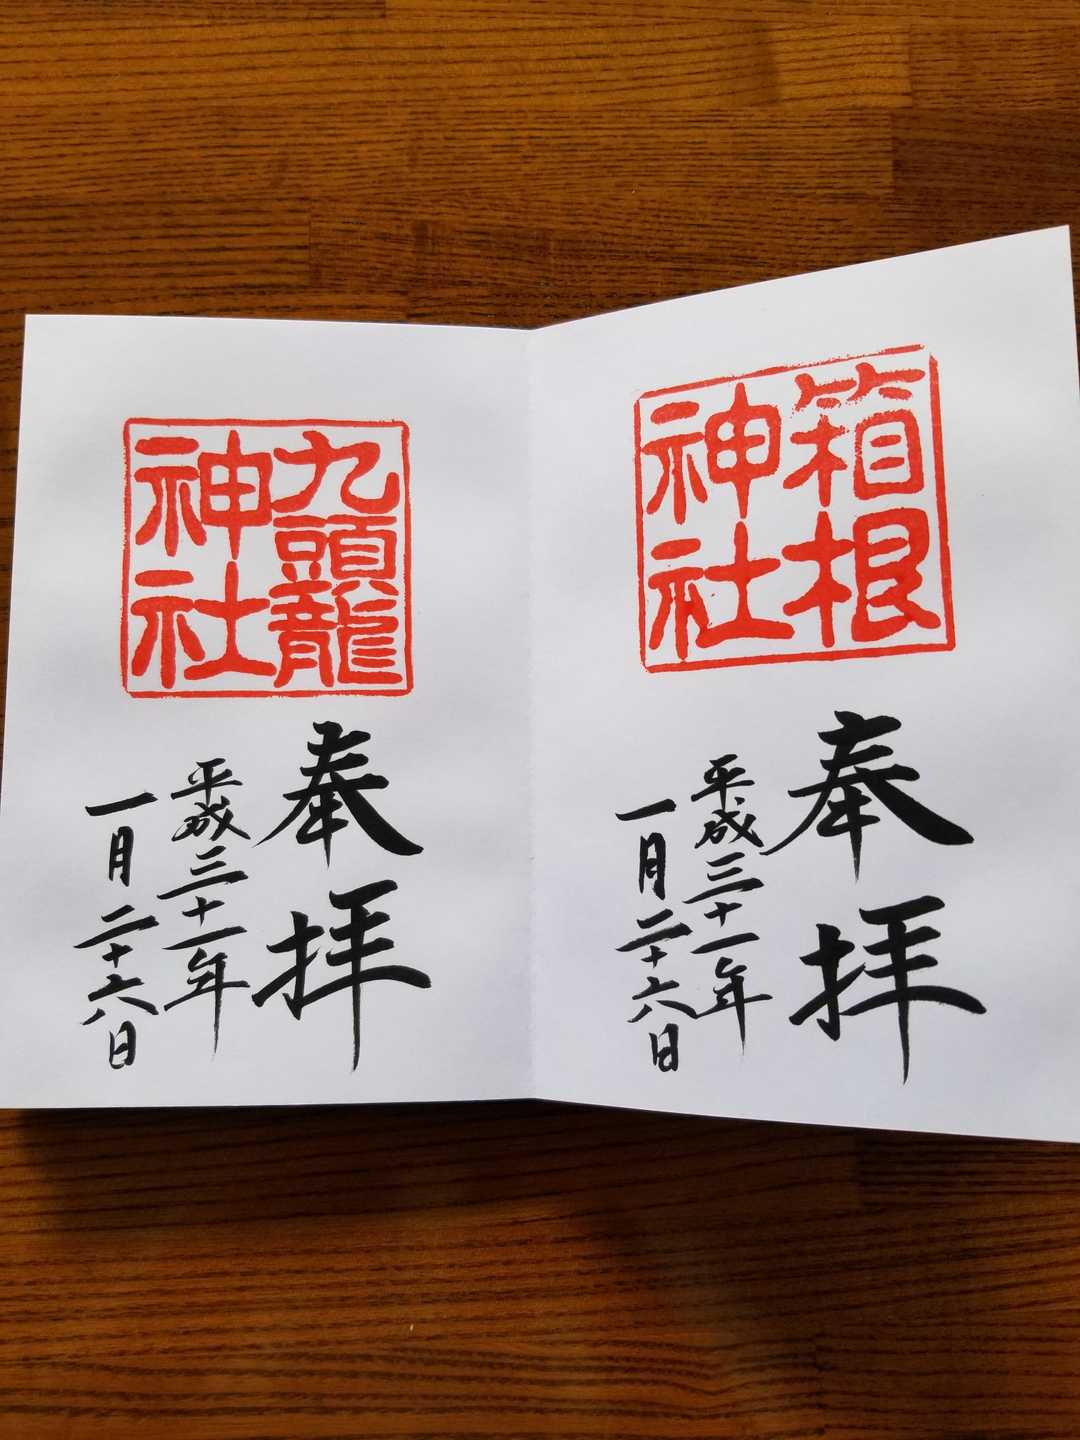 箱根
神社
奉拝
平成三十一年
一月二十六日
九頭龍
神社
奉拝
平成三十一年
一月二十六日